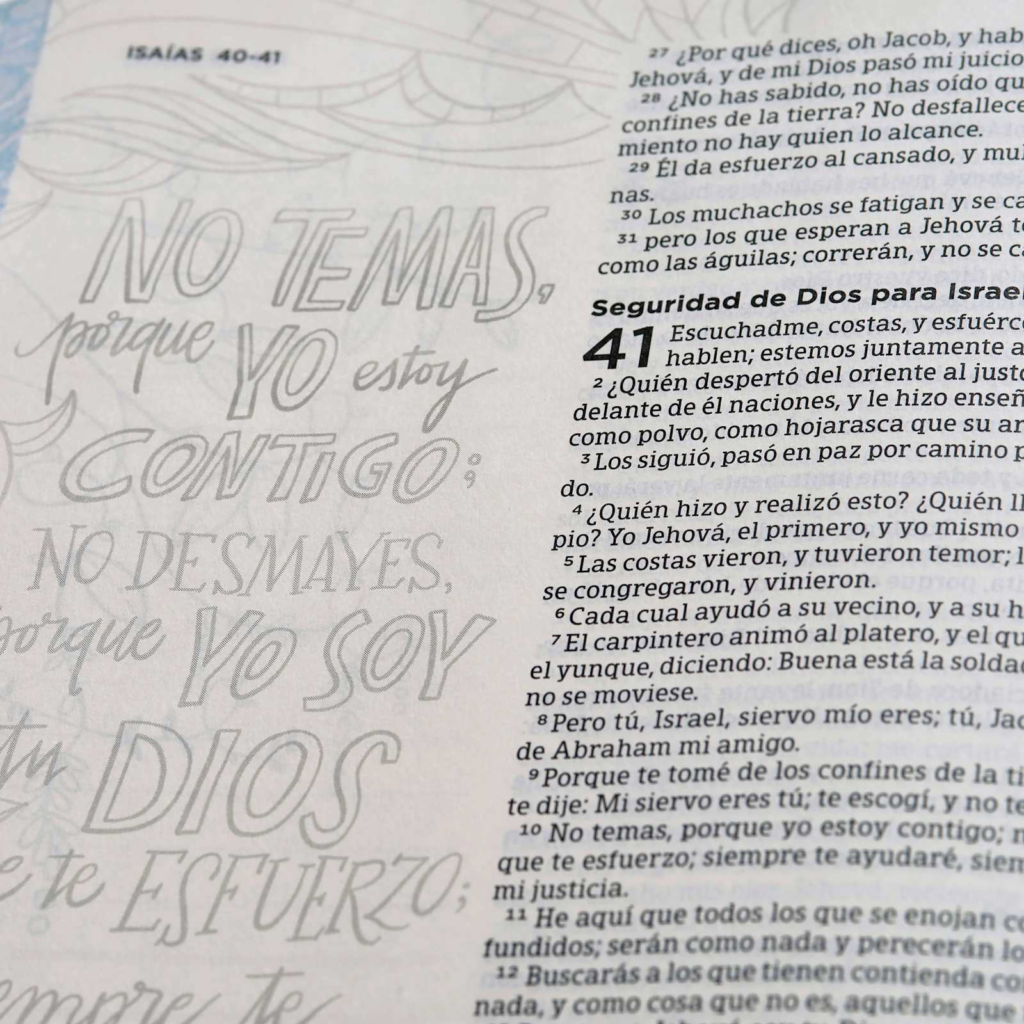 ISAÍAS 40-41
NO TEMAS,
porque YO estoy
CONTIGO;
NO DESMAYES,
porque YO SOY
tu DIOS
te ESFUERZO;
te
27 ¿Por qué dices, oh Jacob, y
Jehová, y de mi Dios pasó mi juicio
28 ¿No has sabido, no has oído
confines de la tierra? No
miento no hay quien lo alcance.
29 Él da esfuerzo al cansado, y
nas.
30 Los muchachos se fatigan y se
31 pero los que esperan a Jehová
como las águilas; correrán, y no se
Seguridad de Dios para Israel
41 Escuchadme, costas, y
hablen; estemos juntamente a
2 ¿Quién despertó del oriente al justo
delante de él naciones, y le hizo
como polvo, como hojarasca que su
3 Los siguió, pasó en paz por camino
do.
4 ¿Quién hizo y realizó esto? ¿Quién
pio? Yo Jehová, el primero, y yo mismo
5 Las costas vieron, y tuvieron temor;
se congregaron, y vinieron.
6 Cada cual ayudó a su vecino, y a su
7 El carpintero animó al platero, y el
el yunque, diciendo: Buena está la
no se moviese.
8 Pero tú, Israel, siervo mío eres; tú,
de Abraham mi amigo.
9 Porque te tomé de los confines de la
te dije: Mi siervo eres tú; te escogí, y no
10 No temas, porque yo estoy contigo;
que te esfuerzo; siempre te ayudaré,
mi justicia.
11 He aquí que todos los que se enojan
fundidos; serán como nada y perecerán
12 Buscarás a los que tienen contienda
nada, y como cosa que no es, aquellos que